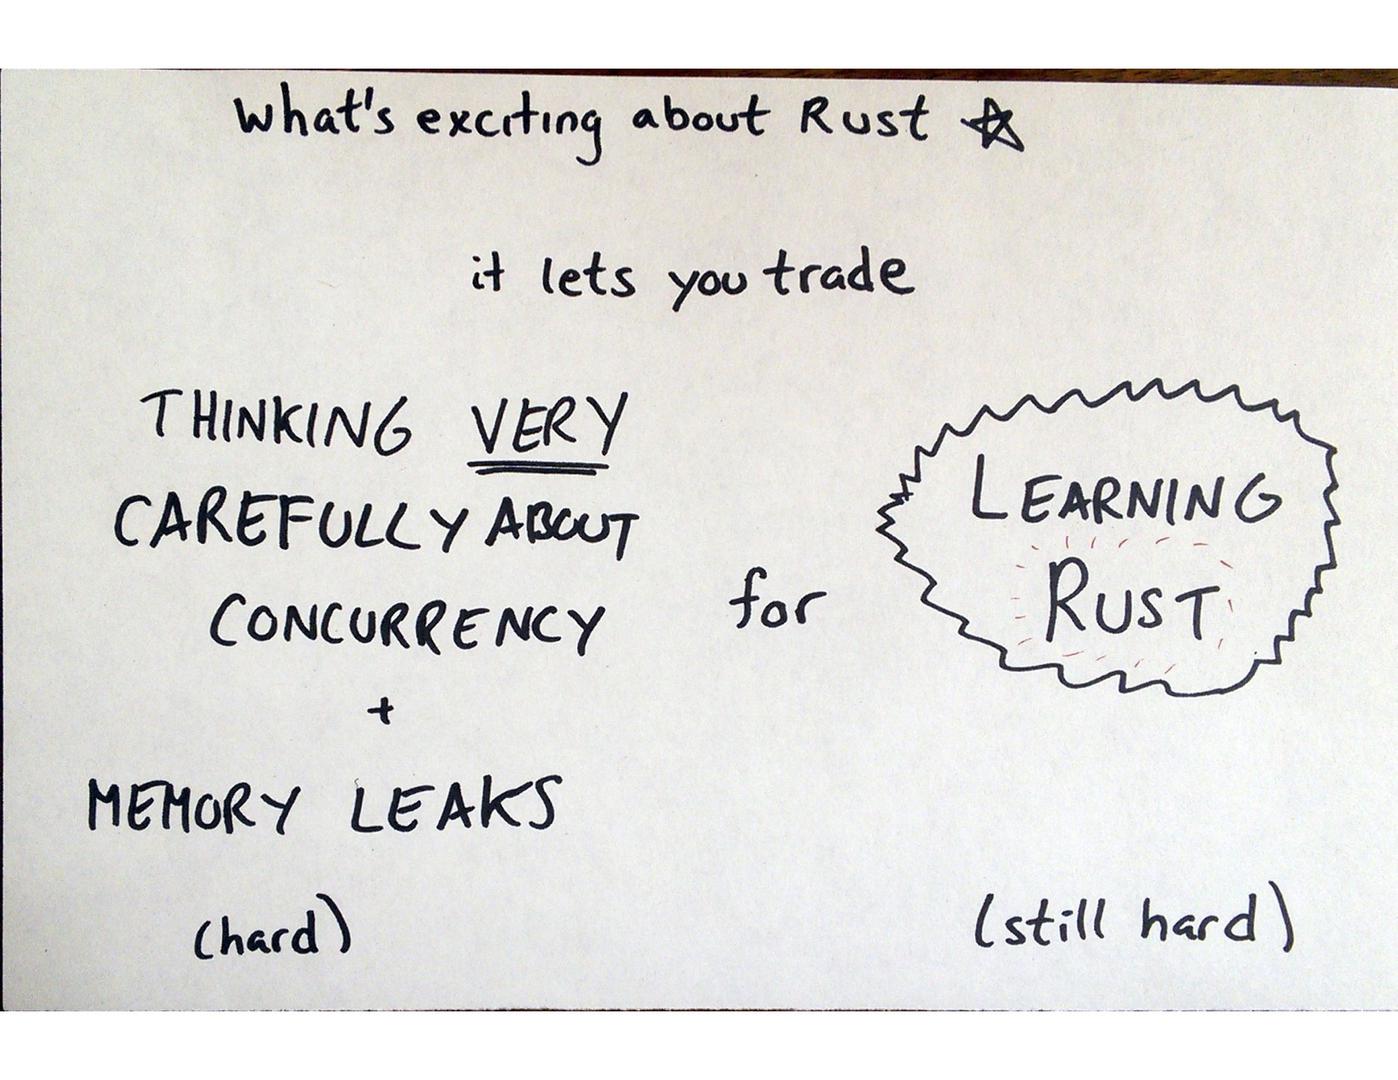 What's exciting about Rust
it lets you trade
THINKING VERY
CAREFULLY ABOUT
CONCURRENCY
+
MEMORY LEAKS
(hard)
for
LEARNING
RUST
(still hard)